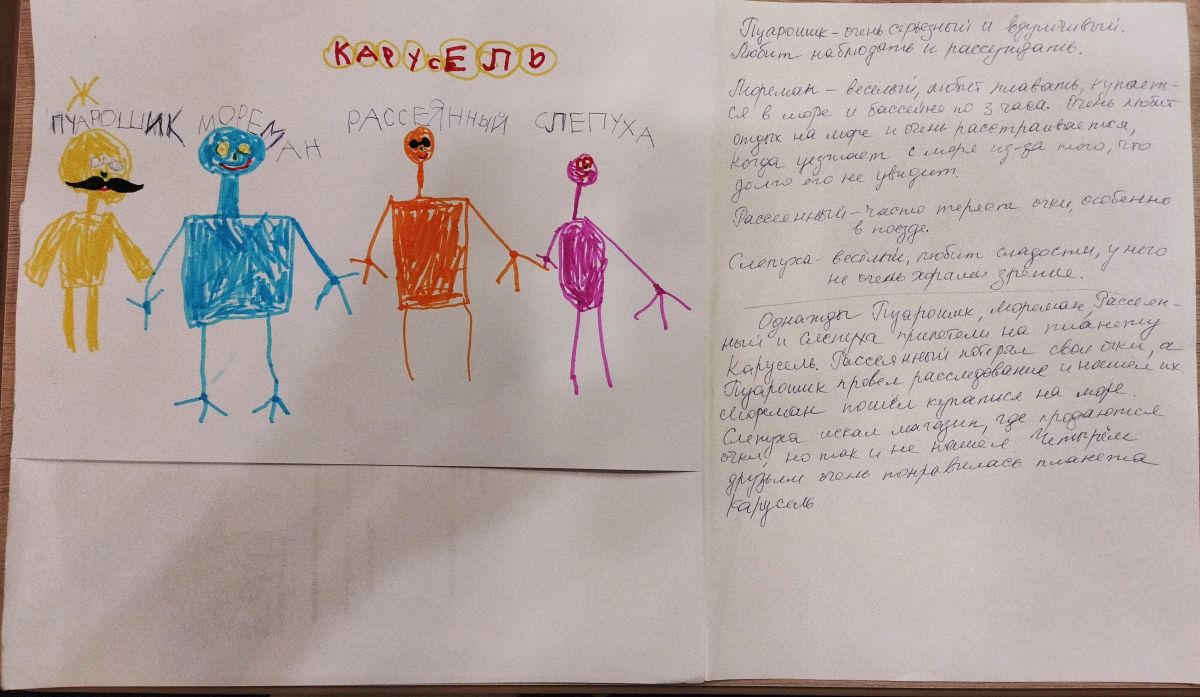 КАРУСЕЛЬ
Ж
ПУАРОШИК
МОРЕМАН
РАССЕЯННЫЙ
СЛЕПУХА
Пуарошик - очень серьезный и вдумчивый.
Любит наблюдать и рассуждать.
Мореман - веселый, любит плавать, купает-
ся в море и бассейне по 3 часа. Очень любит
отдых на море и очень расстраивается,
когда уезжает с моря из-за того, что
долго его не увидит.
Рассеянный - часто теряет очки, особенно
в поезде.
Слепуха - весёлый, любит сладости, у него
не очень хорошее зрение.
Однажды Пуарошик, Мореман, Рассеян-
ный и Слепуха прилетели на планету
Карусель. Рассеянный потерял свои очки, а
Пуарошик провел расследование и нашел их.
Мореман пошёл купаться на море.
Слепуха искал магазин, где продаются
очки, но так и не нашёл. Четырём
друзьям очень понравилась планета
Карусель